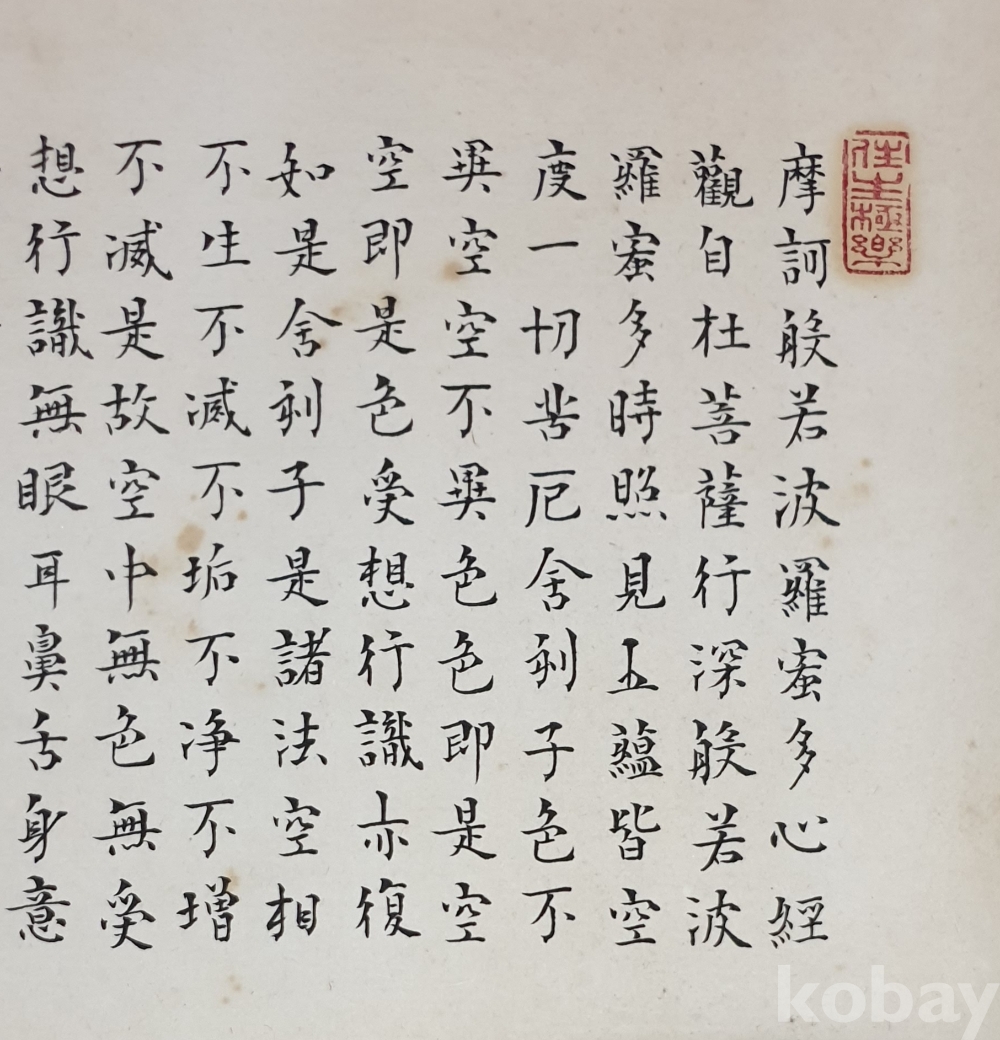 往生極樂
摩訶般若波羅蜜多心經
觀自在菩薩行深般若波
羅蜜多時照見五蘊皆空
度一切苦厄舍利子色不
異空空不異色色即是空
空即是色受想行識亦復
如是舍利子是諸法空相
不生不滅不垢不淨不增
不滅是故空中無色無受
想行識無眼耳鼻舌身意
kobay